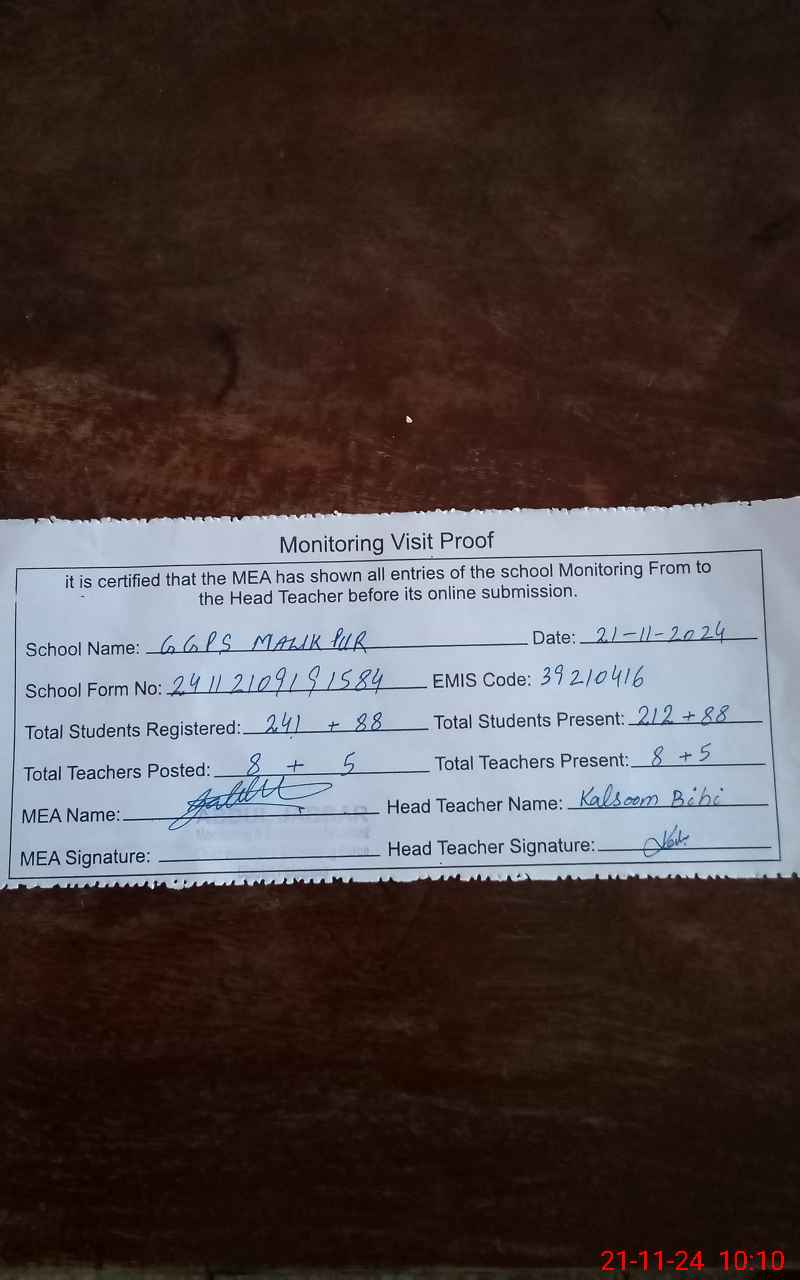 Monitoring Visit Proof
it is certified that the MEA has shown all entries of the school Monitoring From to
the Head Teacher before its online submission.
School Name: GGPS MALIK PUR Date: 21-11-2024
School Form No: 24112109191584 EMIS Code: 39210416
Total Students Registered: 241 + 88 Total Students Present: 212 + 88
Total Teachers Posted: 8 + 5 Total Teachers Present: 8 + 5
MEA Name: Head Teacher Name: Kalsoom Bibi
MEA Signature: Head Teacher Signature:
21-11-24 10:10